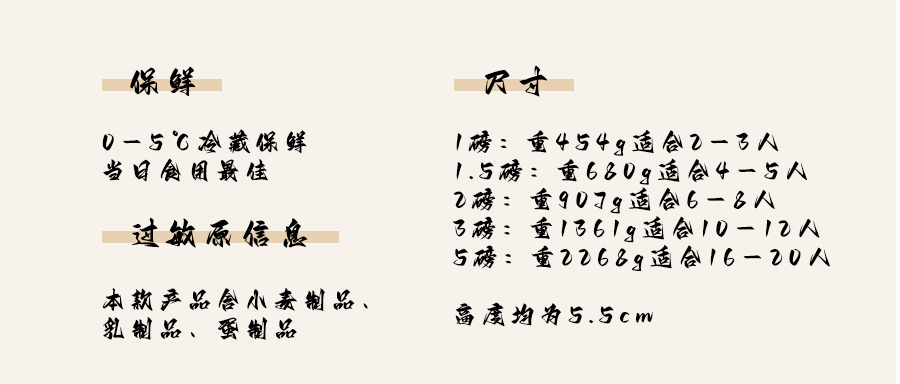 保鲜
0-5℃冷藏保鲜
当日食用最佳
过敏原信息
本款产品含小麦制品、
乳制品、蛋制品
尺寸
1磅：重454g适合2-3人
1.5磅：重680g适合4-5人
2磅：重907g适合6-8人
3磅：重1361g适合10-12人
5磅：重2268g适合16-20人
高度均为5.5cm